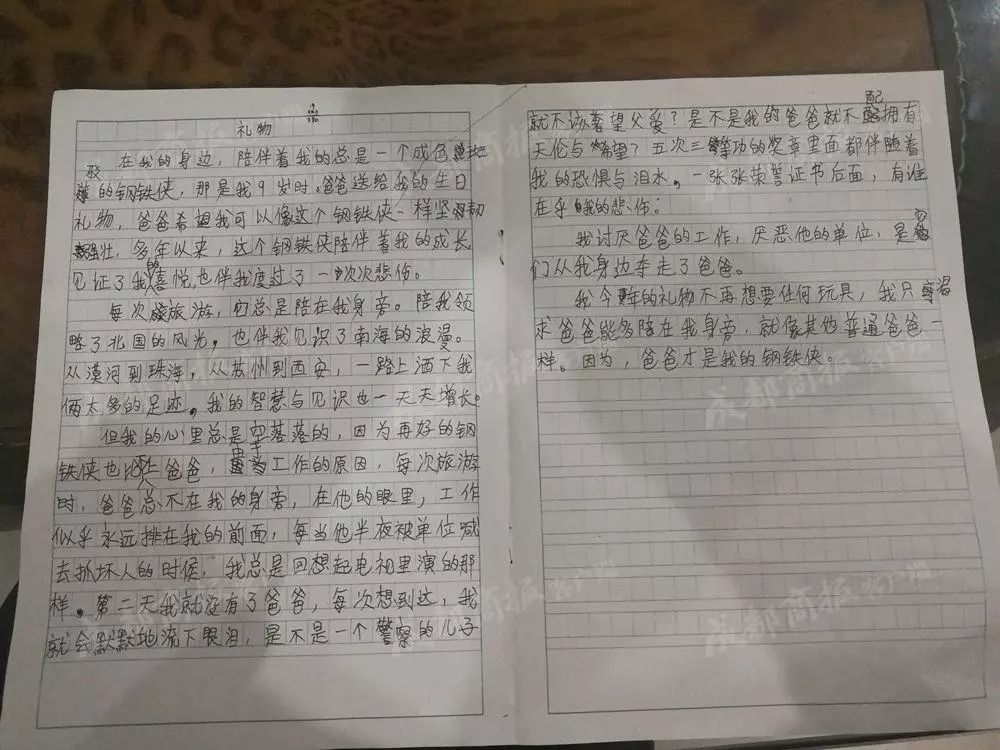 礼物
在我的身边，陪伴着我的总是一个成色
驳的钢铁侠，那是我9岁时爸爸送给我的生日
礼物，爸爸希望我可以像这个钢铁侠一样坚韧
强壮，多年以来，这个钢铁侠陪伴着我的成长
见证了我的喜悦，也伴我度过了一次次悲伤。
每次旅游，它总是陪在我身旁。陪我领
略了北国的风光，也伴我见识了南海的浪漫。
从漠河到珠海，从苏州到西安，一路上洒下我
俩太多的足迹，我的智慧与见识也一天天增长。
但我的心里总是空落落的，因为再好的钢
铁侠也比不上爸爸，由于工作的原因，每次旅游
时，爸爸总不在我的身旁，在他的眼里，工作
似乎永远排在我的前面，每当他半夜被单位喊
去抓坏人的时候，我总是回想起电视里演的那
样。第二天我就没有了爸爸，每次想到这，我
就会默默地流下眼泪，是不是一个警察的儿子
就不该奢望父爱？是不是我的爸爸就不配拥有
天伦与希望？五次三等功的奖章里面都伴随着
我的恐惧与泪水。一张张荣誉证书后面，有谁
在乎我的悲伤。
我讨厌爸爸的工作，厌恶他的单位，是他
们从我身边夺走了爸爸。
我今年的礼物不再想要任何玩具，我只渴
求爸爸能多陪在我身旁，就像其他普通爸爸一
样。因为，爸爸才是我的钢铁侠。
成都商报客户端
成都商报客户端
成都商报客户端
成都商报客户端